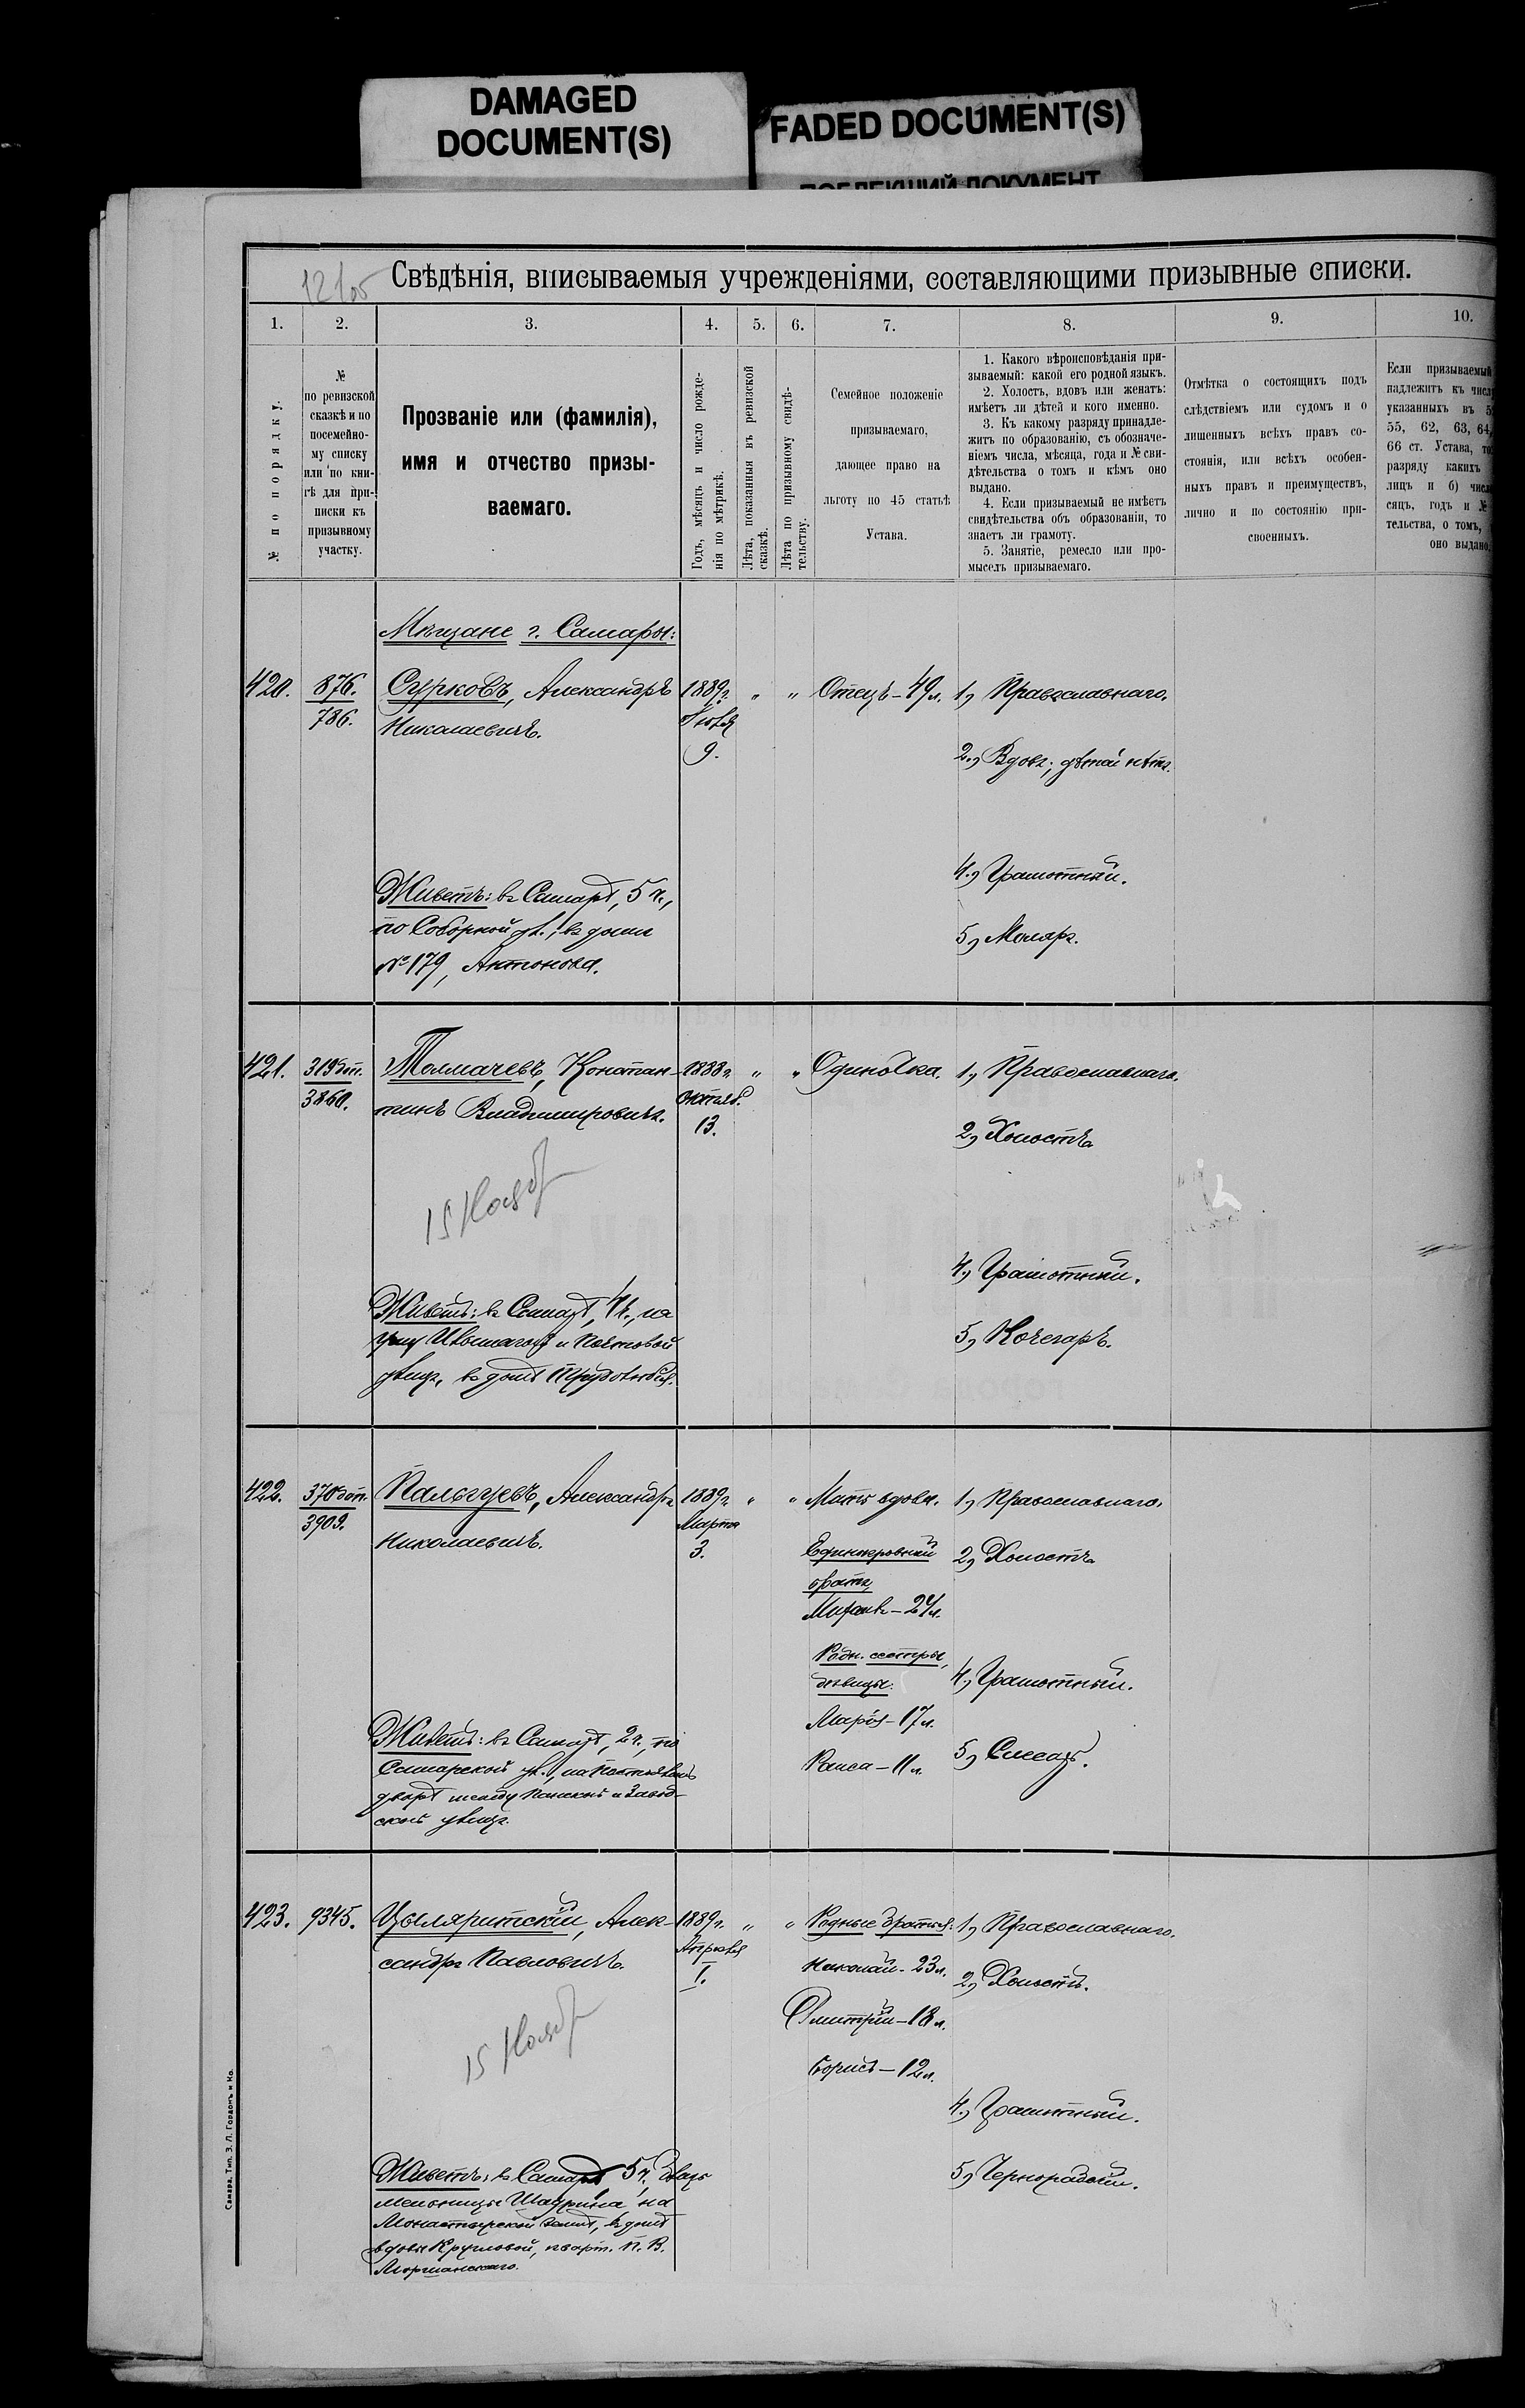 DAMAGED
DOCUMENT(S)
FADED DOCUMENT(S)
ПОБЛЕКШИЙ ДОКУМЕНТ
Свѣдѣнія, вписываемыя учрежденіями, составляющими призывные списки.
1.
2.
3.
4.
5.
6.
7.
8.
9.
10.
№ по порядку.
№
по ревизской
сказкѣ и по
посемейно-
му списку
или по кни-
гѣ для при-
писки къ
призывному
участку.
Прозваніе или (фамилія),
имя и отчество призы-
ваемаго.
Годъ, мѣсяцъ и число рожде-
нія по мѣтрикѣ.
Лѣта, показанныя въ ревизской
сказкѣ.
Лѣта по призывному свидѣ-
тельству.
Семейное положеніе
призываемаго,
дающее право на
льготу по 45 статьѣ
Устава.
1. Какого вѣроисповѣданія при-
зываемый: какой его родной языкъ.
2. Холостъ, вдовъ или женатъ:
имѣетъ ли дѣтей и кого именно.
3. Къ какому разряду принадле-
житъ по образованію, съ обозначе-
ніемъ числа, мѣсяца, года и № сви-
дѣтельства о томъ и кѣмъ оно
выдано.
4. Если призываемый не имѣетъ
свидѣтельства объ образованіи, то
знаетъ ли грамоту.
5. Занятіе, ремесло или про-
мыселъ призываемаго.
Отмѣтка о состоящихъ подъ
слѣдствіемъ или судомъ и о
лишенныхъ всѣхъ правъ со-
стоянія, или всѣхъ особен-
ныхъ правъ и преимуществъ,
лично и по состоянію при-
своенныхъ.
Если призываемый
надлежитъ къ числ
указанныхъ въ 5
55, 62, 63, 64,
66 ст. Устава, то
разряду какихъ
лицъ и б) числ
сяцъ, годъ и №
тельства, о томъ,
оно выдано.
Мѣщане г. Самары:
420.
876.
786.
Сурковъ, Александръ
Николаевичъ.
1889г.
9.
" "
Отецъ - 49л.
1, Православнаго.
2, Вдовъ; дѣтей нѣтъ.
4, Грамотный.
5, Маляръ.
Живетъ: въ Самарѣ, 5 ч.,
по Соборной ул., въ домѣ
№ 179, Антонова.
421.
3860.
Толмачевъ, Констан-
тинъ Владимировичъ.
1888г.
Октяб.
13.
" "
Одиночка.
1, Православнаго.
2, Холостъ
4, Грамотный.
5, Кочегаръ.
15 Нояб
Живетъ: въ Самарѣ, 4 ч., на
углу и Почтовой
улицъ, въ домѣ
422.
3909.
Пальгуевъ, Александръ
Николаевичъ.
1889г.
Марта
3.
" "
Мать вдова.
Единокровный
братъ,
Родн. сестры,
дѣвицы:
Марія - 17л.
Раиса - 11л.
1, Православнаго.
2, Холостъ
4, Грамотный.
5, Слесарь.
Живетъ: въ Самарѣ, 2 ч., по
Самарской ул., на Постояломъ
дворѣ между Панской и Завод-
ской улицъ.
423.
9345.
Цыляритскій, Алек-
сандръ Павловичъ.
1889г.
Апрѣля
1.
" "
Родные братья:
Николай - 23л.
Дмитрій - 18л.
Борисъ - 12л.
1, Православнаго.
2, Холостъ.
4, Грамотный.
5, Чернорабочій.
15 Нояб
Живетъ: въ Самарѣ 5 ч. близь
мельницы Шадрина на
Монастырской землѣ, въ домѣ
вдовы Кругловой, кварт. П. В.
Моршанскаго.
Самара. Тип. З. Л. Гордонъ и Ко.